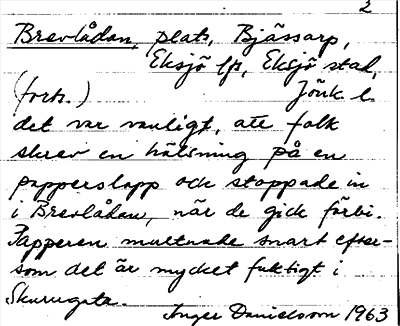 2
Brevlådan, plats, Bjässarp,
Eksjö lfs, Eksjö stad,
(forts.) Jönk. l.
det var vanligt, att folk
skrev en hälsning på en
papperslapp och stoppade in
i Brevlådan, när de gick förbi.
Papperen multnade snart efter-
som det är mycket fuktigt i
Skurugata.
Inger Danielsson 1963